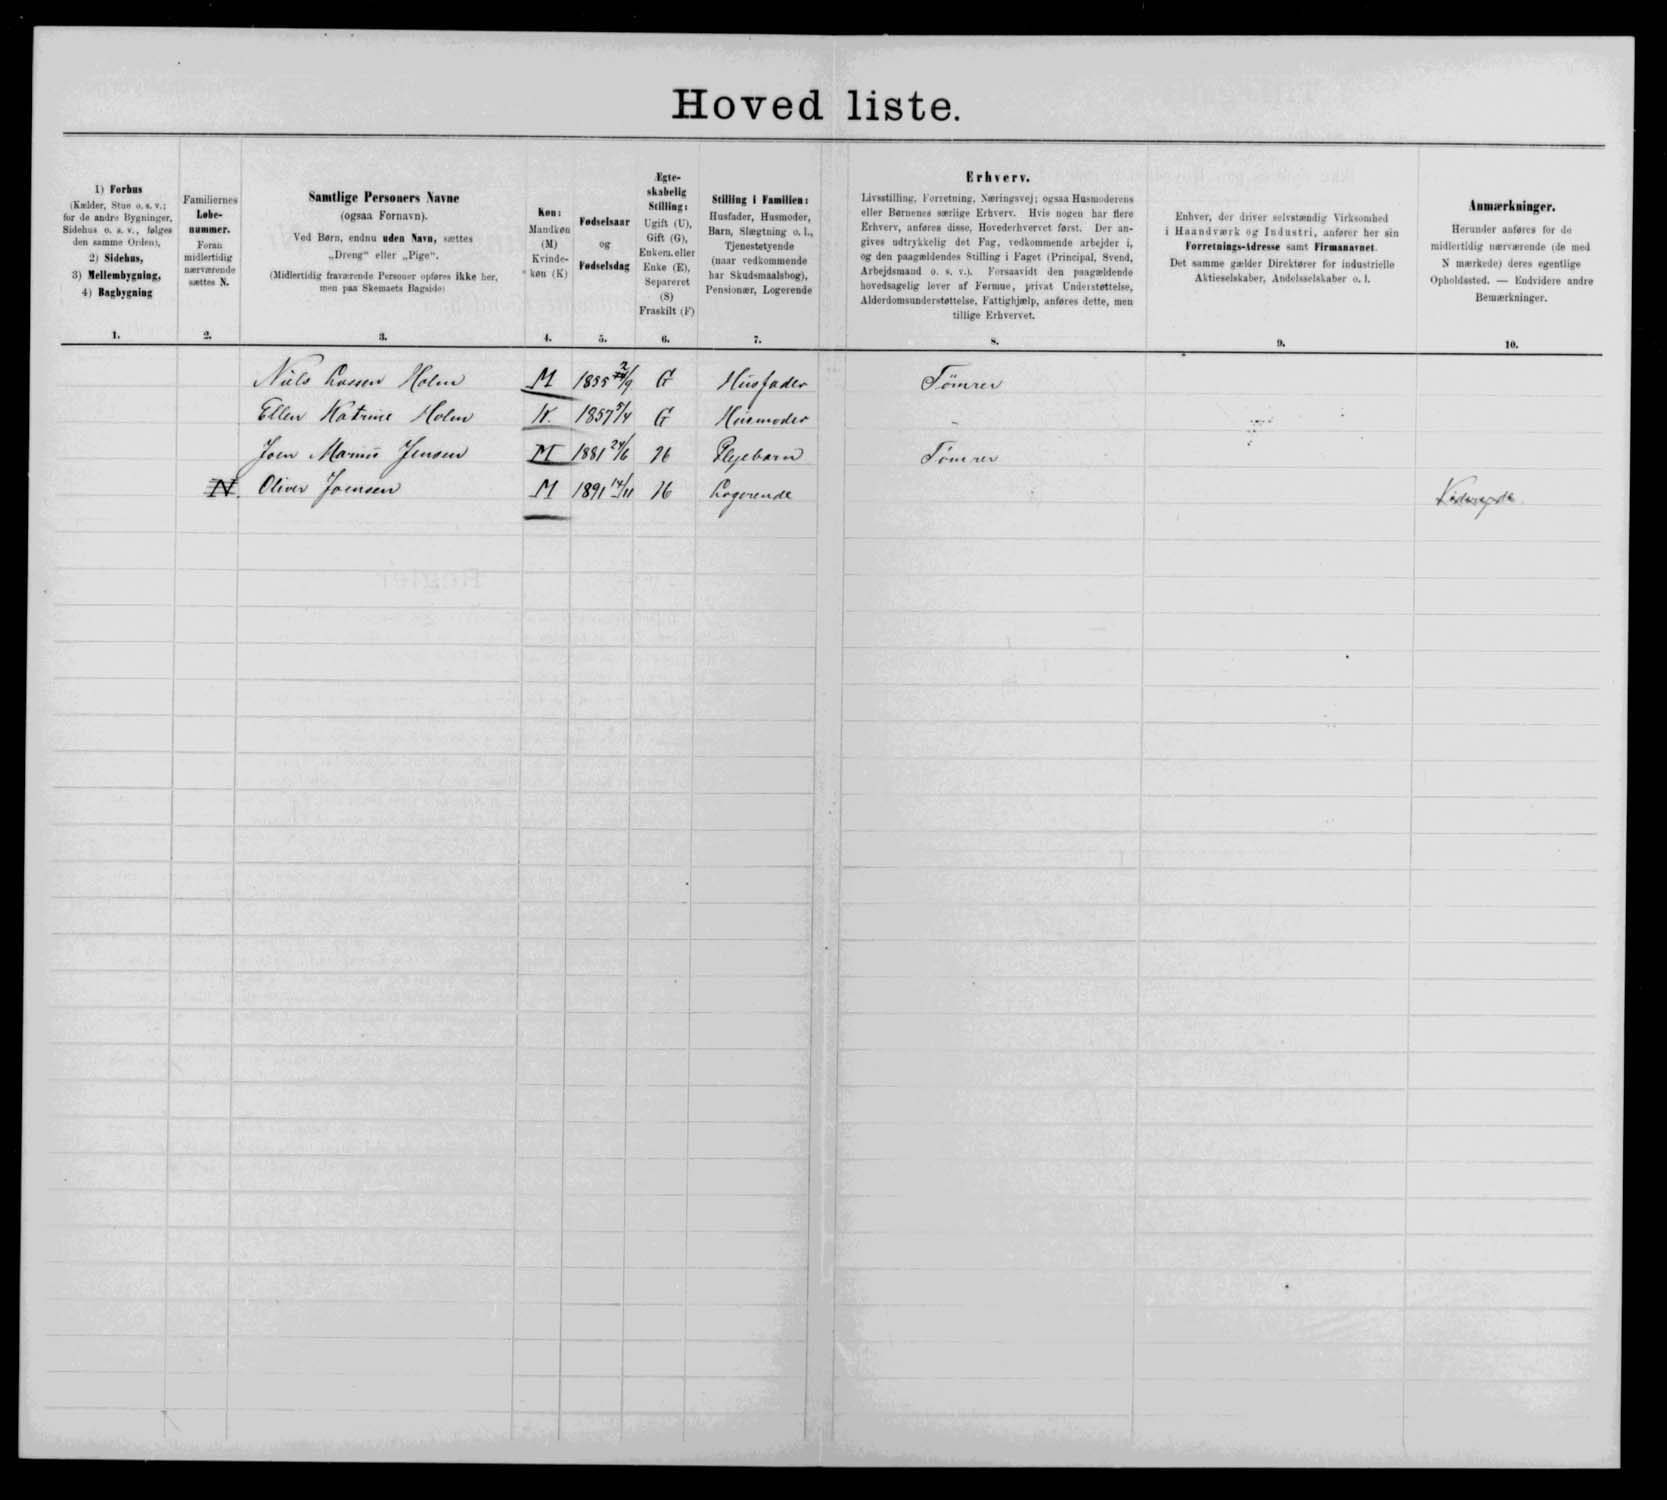 Hoved liste.
1) Forhus
(Kælder, Stue o. s. v.;
for de andre Bygninger,
Sidehus o. s. v., følges
den samme Orden),
2) Sidehus,
3) Mellembygning,
4) Bagbygning
1.
Familiernes
Løbe-
nummer.
Foran
midlertidig
nærværende
sættes N.
2.
Samtlige Personers Navne
(ogsaa Fornavn).
Ved Børn, endnu uden Navn, sættes
„Dreng" eller „Pige".
(Midlertidig fraværende Personer opføres ikke her,
men paa Skemaets Bagside)
3.
Køn:
Mandkøn
(M)
Kvinde-
køn (K)
4.
Fødselsaar
og
Fødselsdag
5.
Ægte-
skabelig
Stilling:
Ugift (U),
Gift (G),
Enkem. eller
Enke (E),
Separeret
(S)
Fraskilt (F)
6.
Stilling i Familien:
Husfader, Husmoder,
Barn, Slægtning o. l.,
Tjenestetyende
(naar vedkommende
har Skudsmaalsbog),
Pensionær, Logerende
7.
Erhverv.
Livsstilling, Forretning, Næringsvej; ogsaa Husmoderens
eller Børnenes særlige Erhverv. Hvis nogen har flere
Erhverv, anføres disse, Hovederhvervet først. Der an-
gives udtrykkelig det Fag, vedkommende arbejder i,
og den paagældendes Stilling i Faget (Principal, Svend,
Arbejdsmand o. s. v.). Forsaavidt den paagældende
hovedsagelig lever af Formue, privat Understøttelse,
Alderdomsunderstøttelse, Fattighjælp, anføres dette, men
tillige Erhvervet.
8.
Enhver, der driver selvstændig Virksomhed
i Haandværk og Industri, anfører her sin
Forretnings-Adresse samt Firmanavnet.
Det samme gælder Direktører for industrielle
Aktieselskaber, Andelsselskaber o. l.
9.
Anmærkninger.
Herunder anføres for de
midlertidig nærværende (de med
N mærkede) deres egentlige
Opholdssted. — Endvidere andre
Bemærkninger.
10.
Niels Lassen Holm M 1855 2/9 G Husfader Tömrer
Ellen Katrine Holm K. 1857 5/4 G Husmoder
Joen Marius Jensen M 1881 24/6 U Plejebarn Tömrer
N Oliver Joensen M 1891 14/11 U Logerende